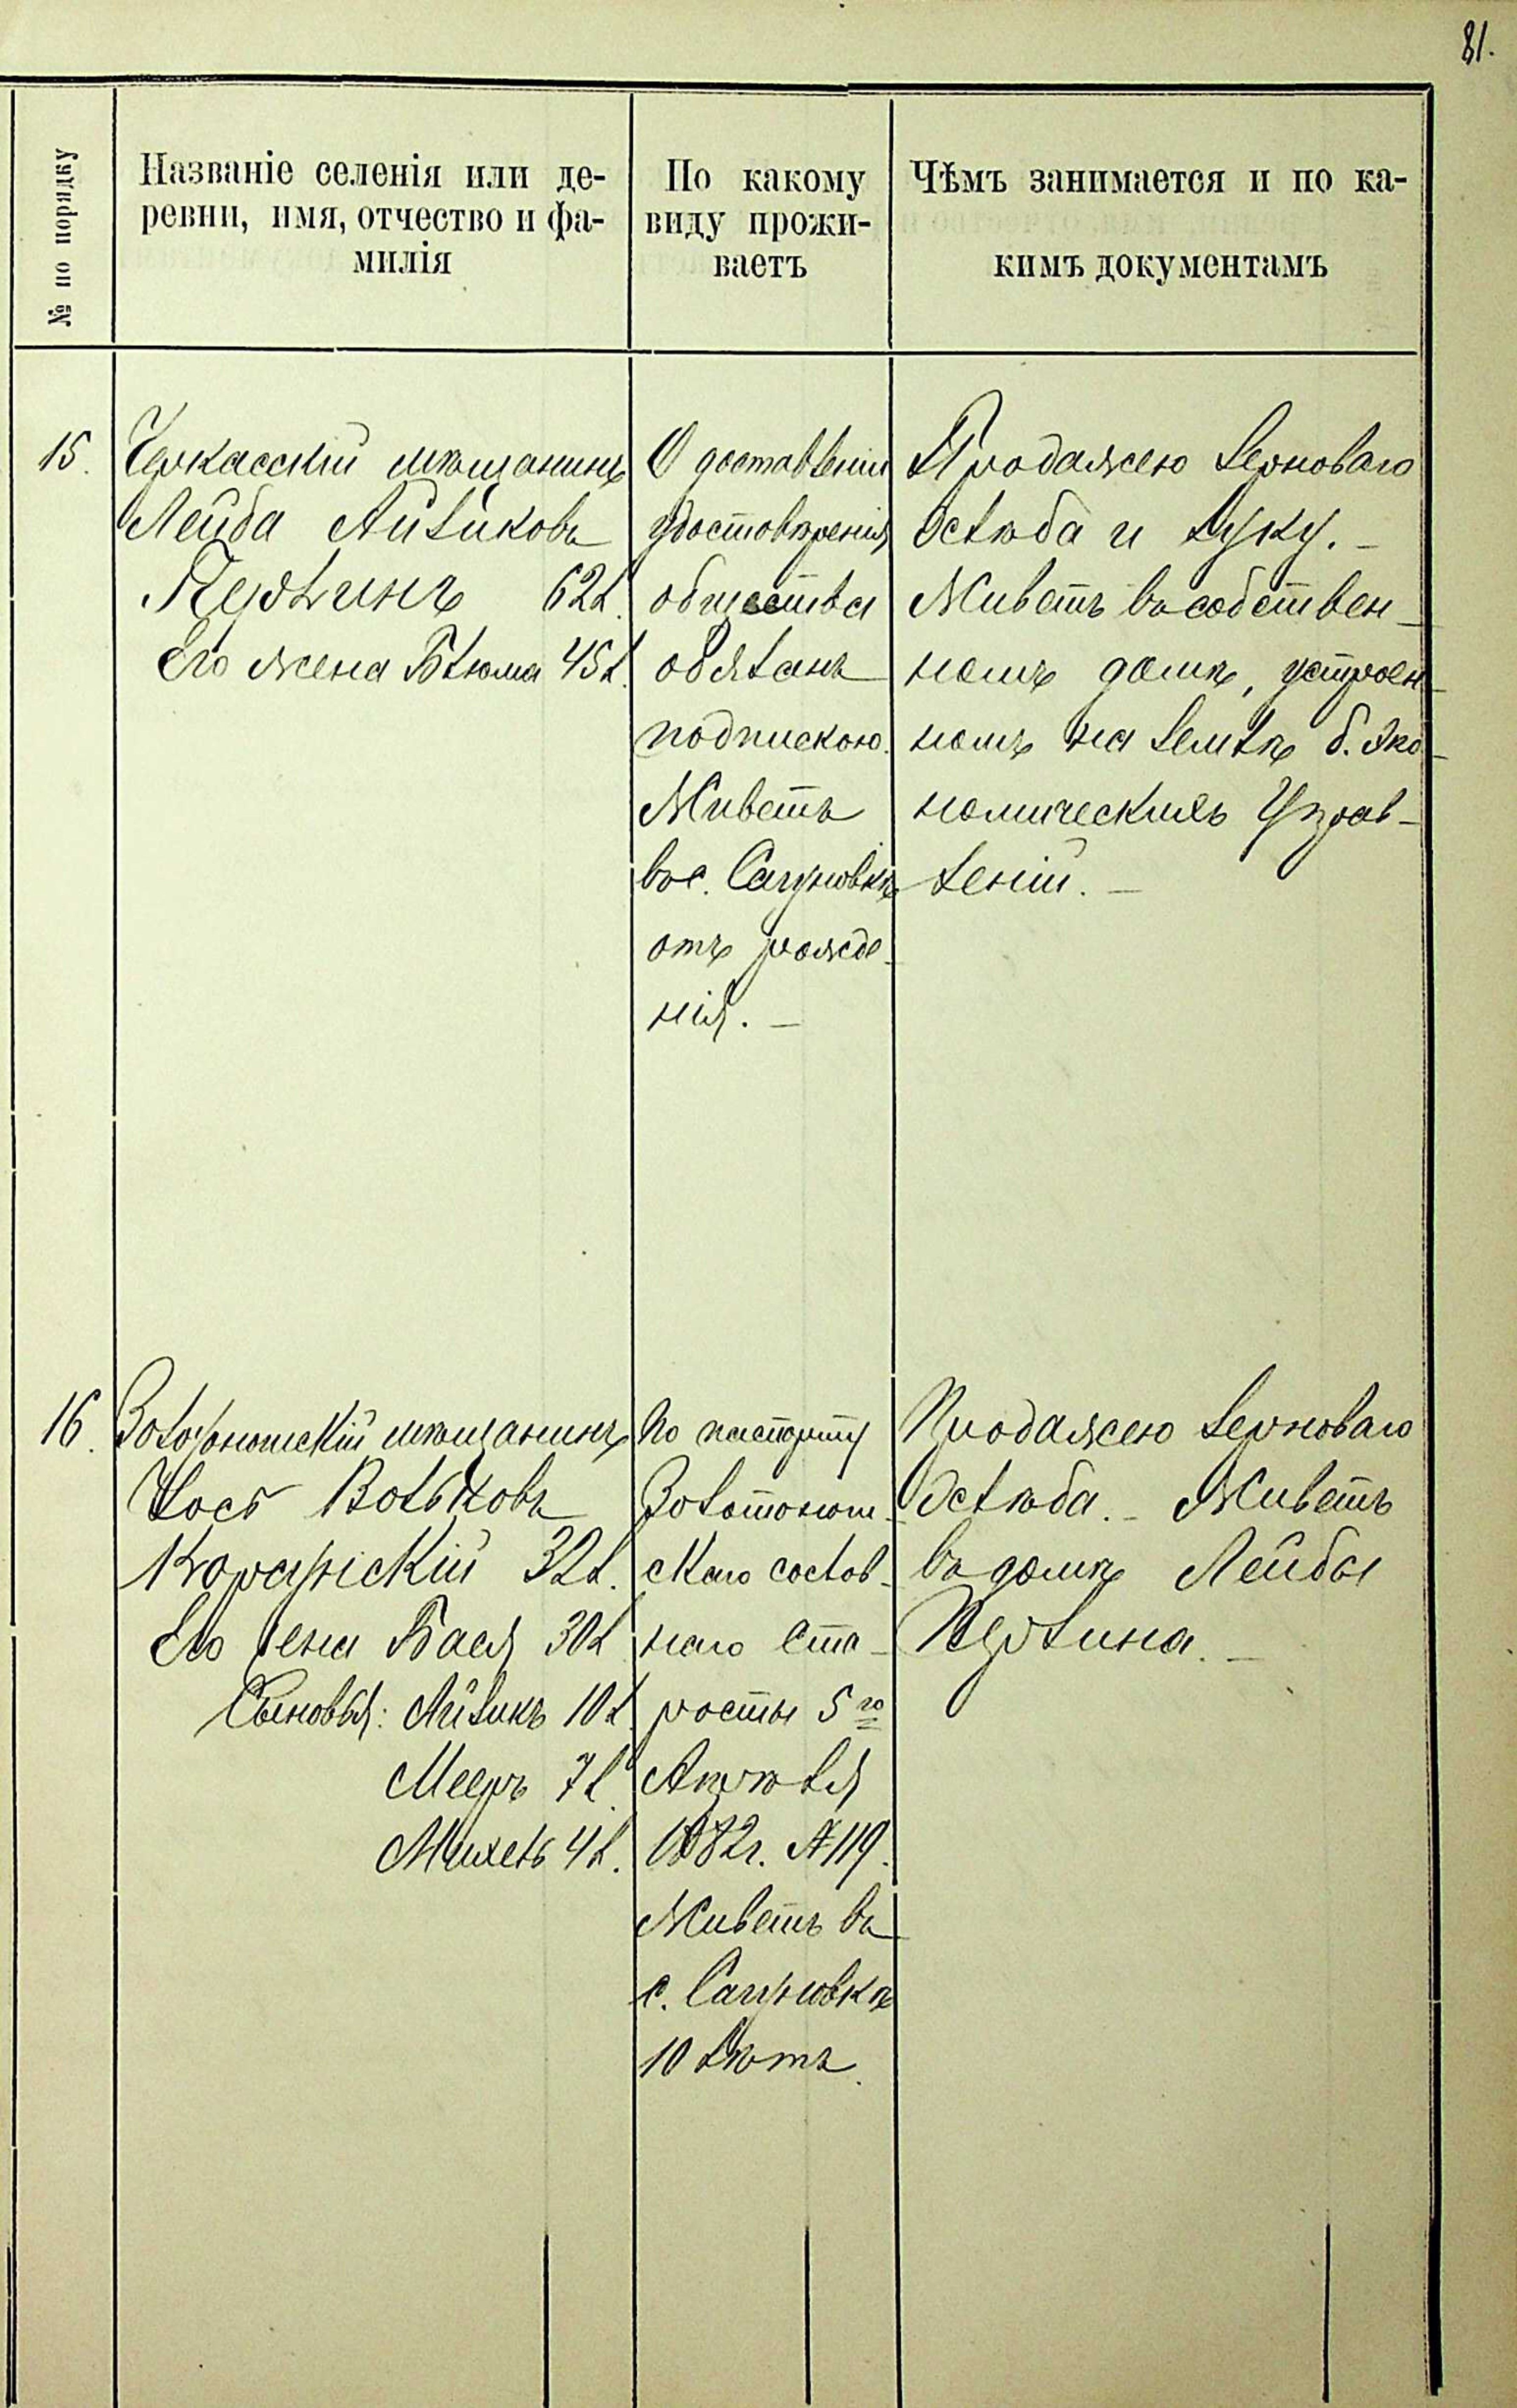 81.
№ по порядку
Названіе селенія или де-
ревни, имя, отчество и фа-
милія
По какому
виду прожи-
ваетъ
Чѣмъ занимается и по ка-
кимъ документамъ
15.
Черкасскій мѣщанинъ
Лейба Айзиковъ
62 л.
Его жена Блюма 45 л.
О доставленіи
удостовѣренія
общества
обязанъ
подпискою.
Живетъ
въ с. Сагуновкѣ
отъ рожде-
нія. —
Продажею зернового
хлѣба и муку. —
Живетъ въ собствен-
номъ домѣ, устроен-
номъ на землѣ б. Эко-
номическихъ Управ-
леній. —
16.
Золотоношскій мѣщанинъ
Іось Вольковъ
32 л.
Его жена Бася 30 л.
Сыновья: Айзикъ 10 л.
Мееръ 7 л.
Михель 4 л.
По паспорту
Золотонош-
скаго сослов-
наго Ста-
росты 5го
Апрѣля
1882 г. № 119.
Живетъ въ
с. Сагуновкѣ
10 лѣтъ.
Продажею зернового
хлѣба. — Живетъ
въ домѣ Лейбы